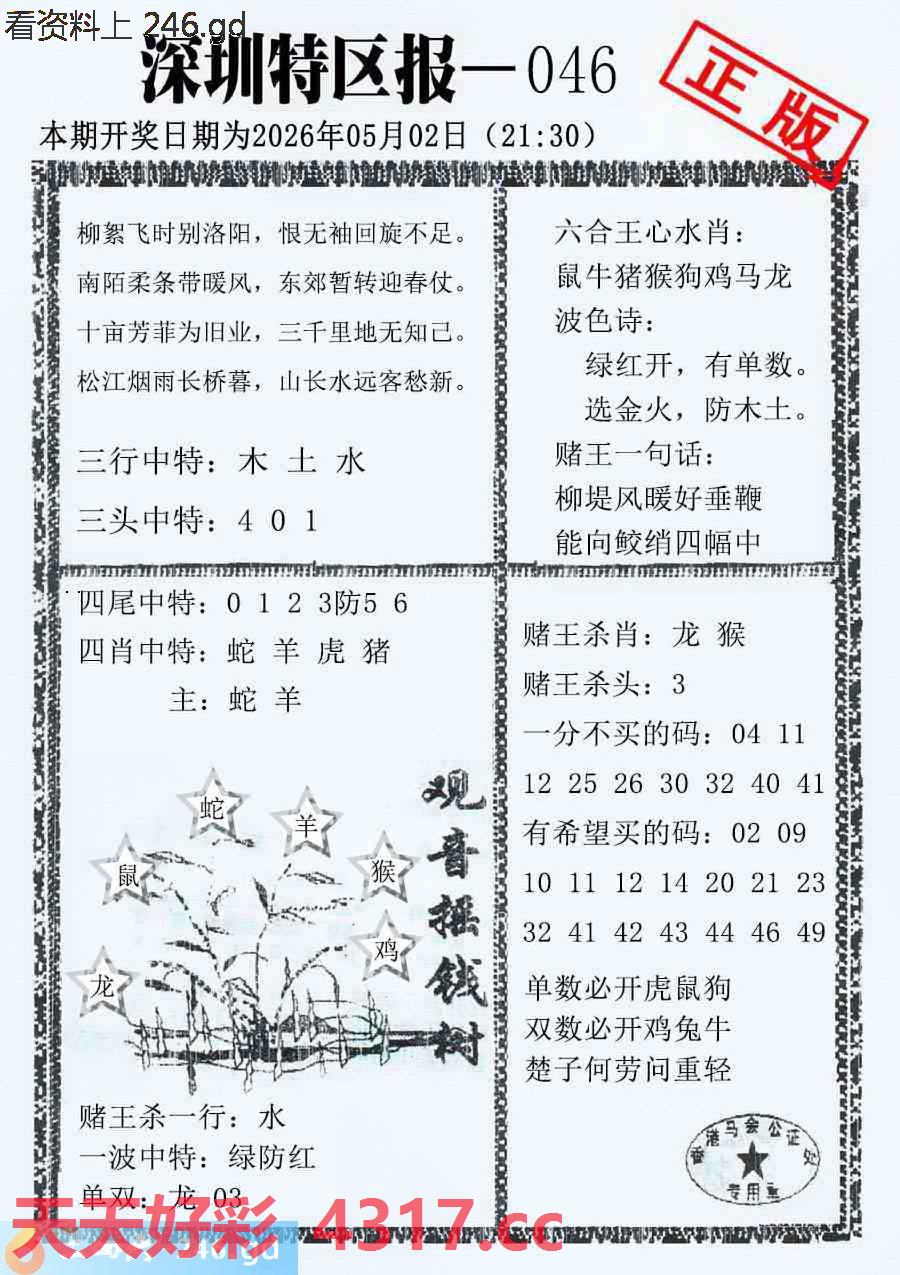 看资料上 246.gd
深圳特区报－046
正版
本期开奖日期为2026年05月02日（21:30）
柳絮飞时别洛阳，恨无袖回旋不足。
南陌柔条带暖风，东郊暂转迎春仗。
十亩芳菲为旧业，三千里地无知己。
松江烟雨长桥暮，山长水远客愁新。
三行中特：木 土 水
三头中特：4 0 1
六合王心水肖：
鼠牛猪猴狗鸡马龙
波色诗：
绿红开，有单数。
选金火，防木土。
赌王一句话：
柳堤风暖好垂鞭
能向鲛绡四幅中
四尾中特：0 1 2 3防5 6
四肖中特：蛇 羊 虎 猪
主：蛇 羊
蛇
羊
鼠
猴
鸡
龙
观音摇钱树
赌王杀一行：水
一波中特：绿防红
单双：龙 03
赌王杀肖：龙 猴
赌王杀头：3
一分不买的码：04 11
12 25 26 30 32 40 41
有希望买的码：02 09
10 11 12 14 20 21 23
32 41 42 43 44 46 49
单数必开虎鼠狗
双数必开鸡兔牛
楚子何劳问重轻
香港马会公证处
专用章
天天好彩 4317.cc